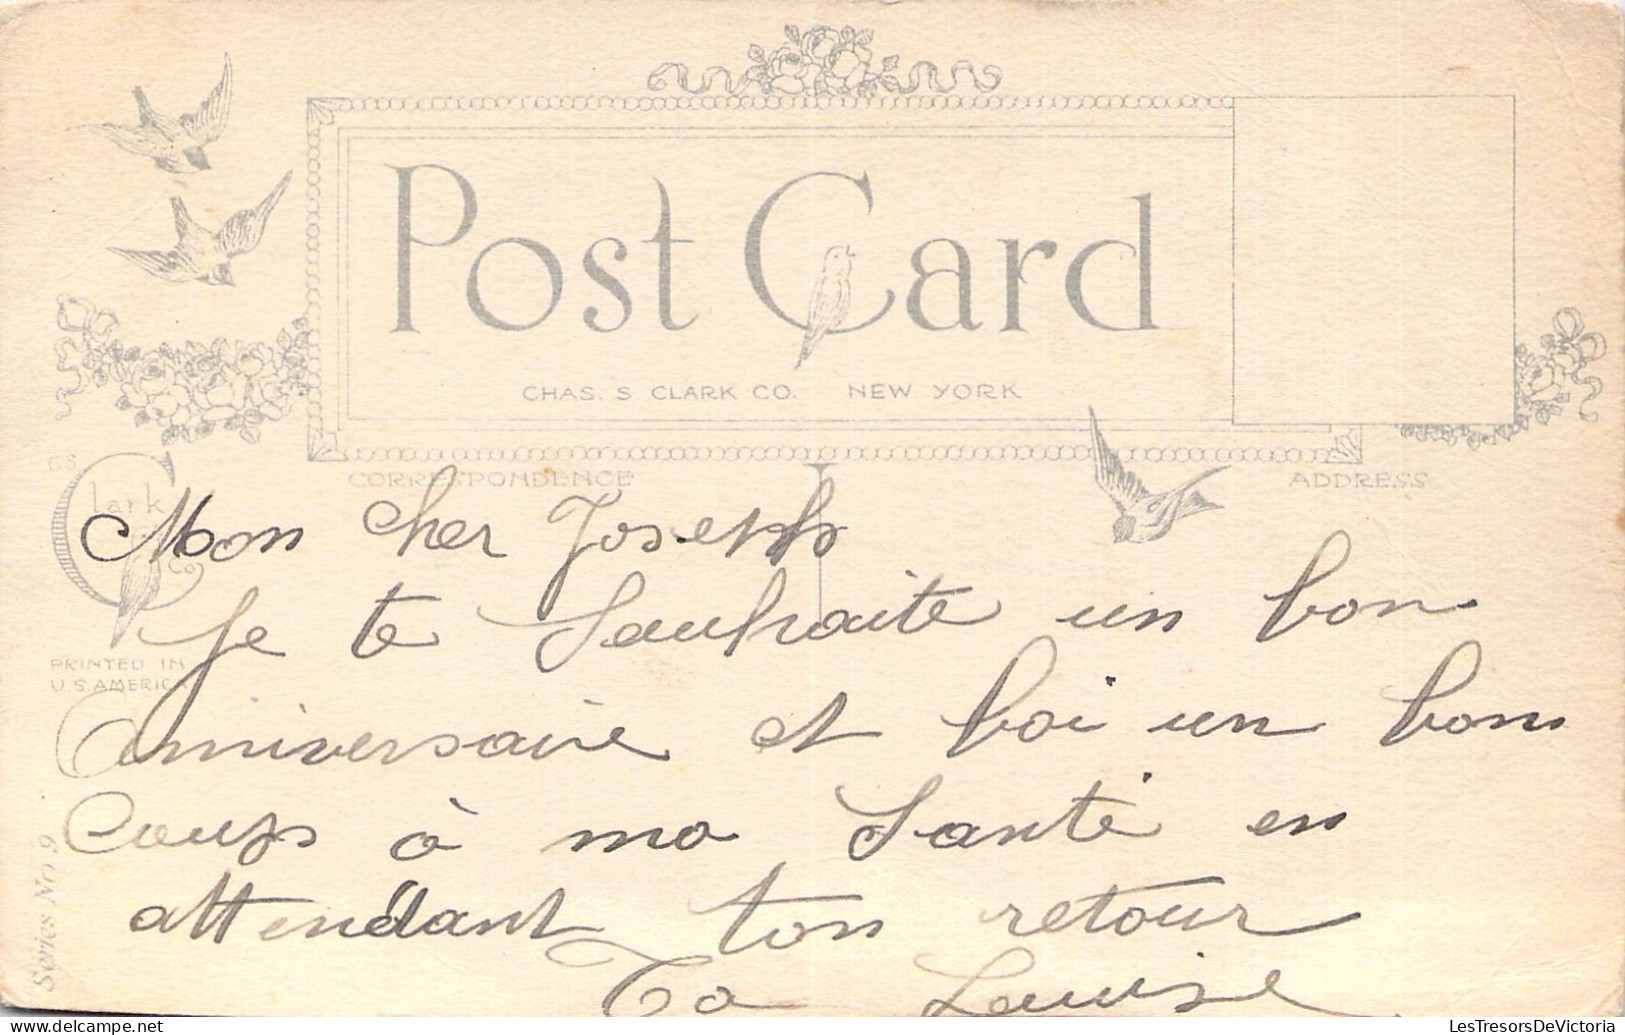 Post Card
CHAS. S CLARK CO. NEW YORK
CORRESPONDENCE
ADDRESS
CS
Clark
Co
PRINTED IN
U.S. AMERICA
Series No 9
Mon cher Joseph
Je te Souhaite un bon
Anniversaire et boi un bon
Coup à ma Santé en
attendant ton retour
Ta Louise
LesTresorsDeVictoria